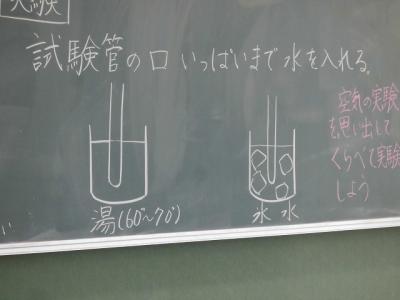 実験
試験管の口いっぱいまで水を入れる。
空気の実験
を思い出して
くらべて実験
しよう
湯(60°~70°)
氷水
い